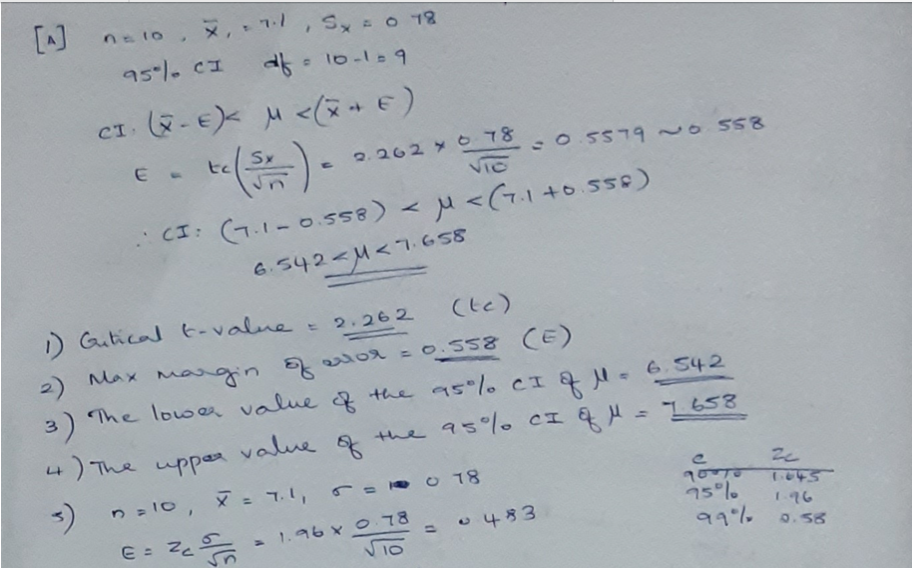 [A] n = 10 , x̄, = 7.1 , Sx = 0 78
95% CI df = 10-1 = 9
CI. (x̄ - E) < μ < (x̄ + E)
E = tc(Sx/√n) = 2.262 × 0.78/√10 = 0.5579 ~ 0 558
∴ CI: (7.1 - 0.558) < μ < (7.1 + 0.558)
6.542 < μ < 7.658
1) Critical t-value = 2.262 (tc)
2) Max margin of error = 0.558 (E)
3) The lower value of the 95% CI of μ = 6.542
4) The upper value of the 95% CI of μ = 7.658
5) n = 10, x̄ = 7.1, σ = 0 78
E = Zc σ/√n = 1.96 × 0.78/√10 = 0 483
c Zc
90% 1.645
95% 1.96
99% 0.58